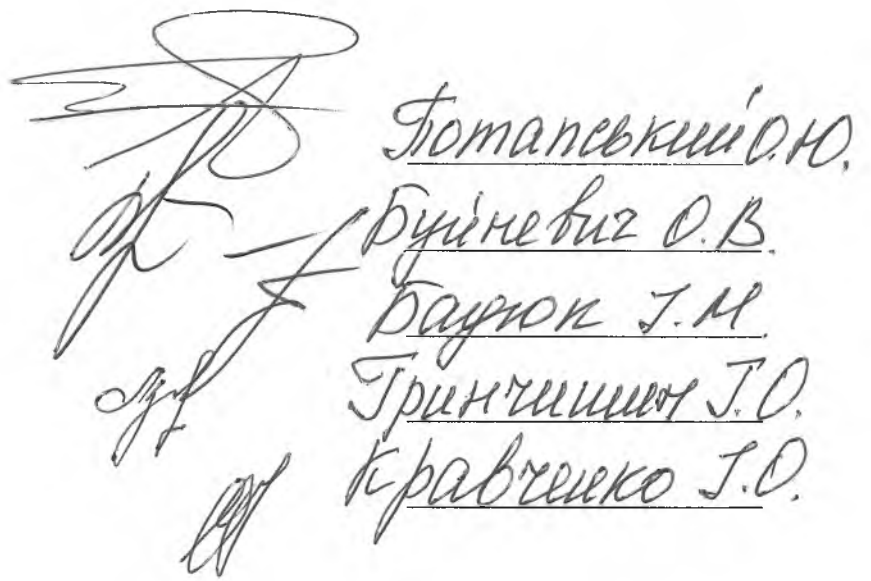 Потапський О.Ю.
Буйневич О.В.
Бадюк І.М.
Гринчишин Г.О.
Кравченко І.О.